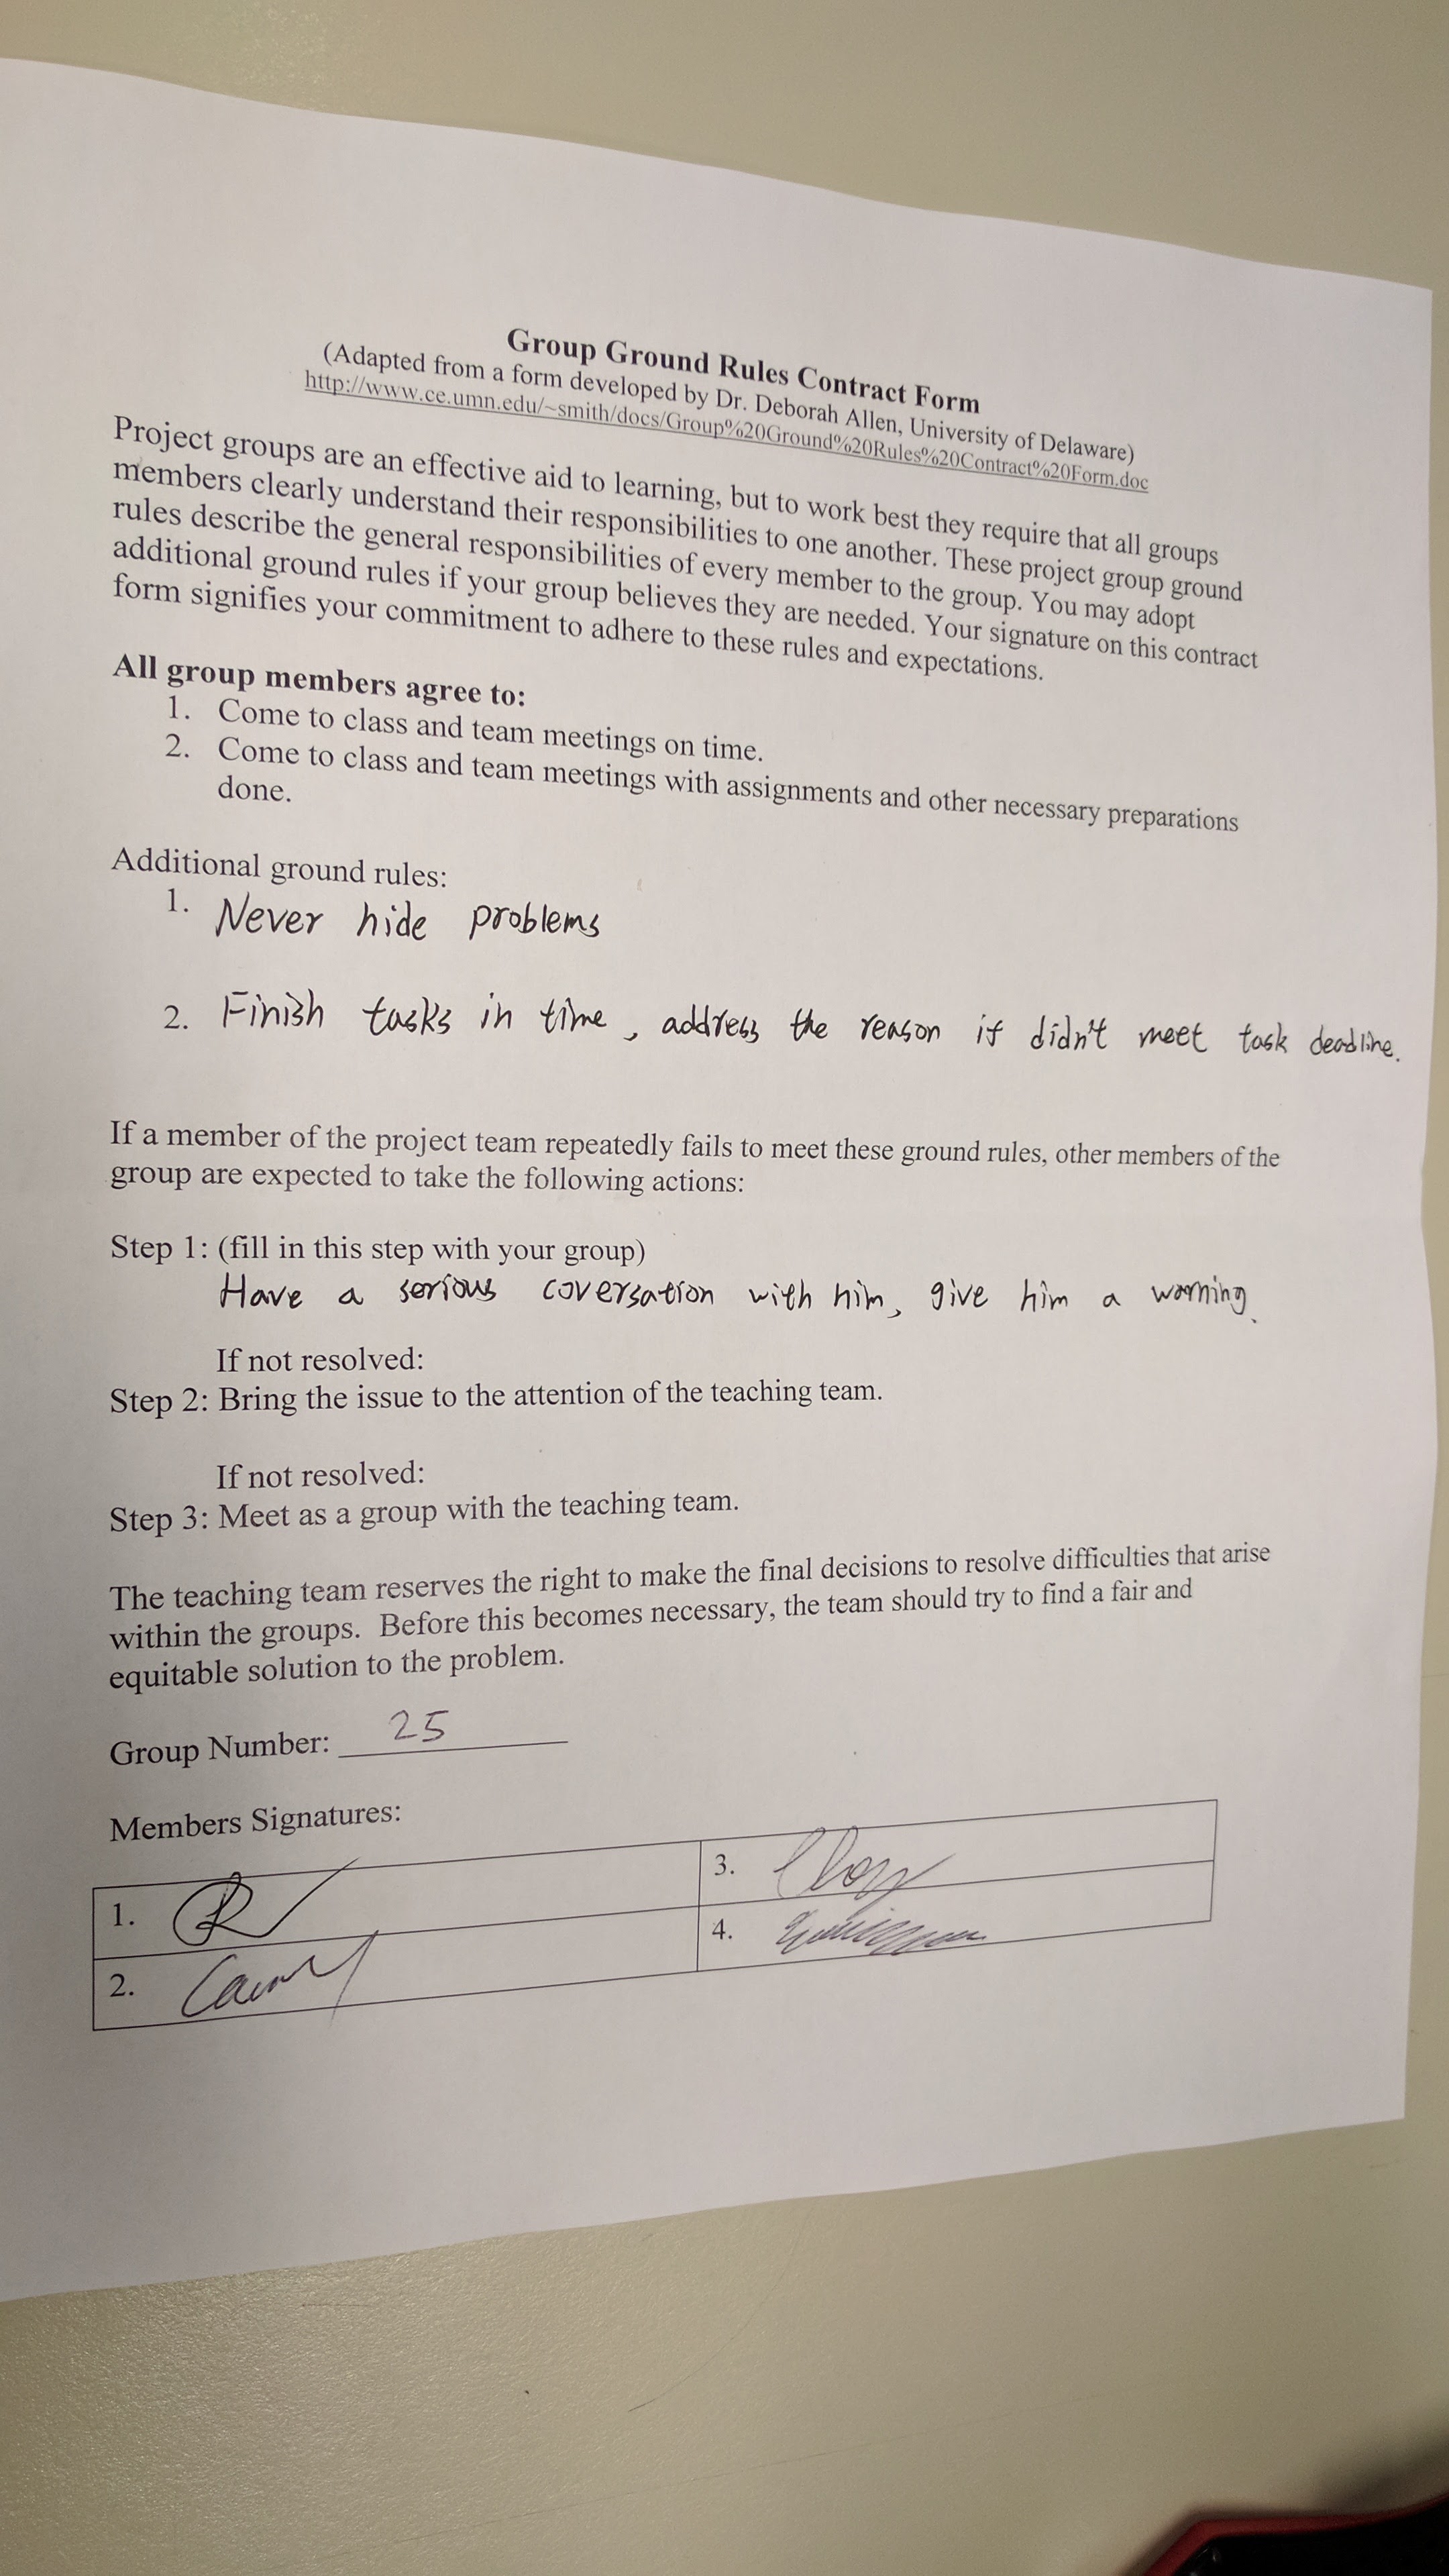 Group Ground Rules Contract Form
(Adapted from a form developed by Dr. Deborah Allen, University of Delaware)
http://www.ce.umn.edu/~smith/docs/Group%20Ground%20Rules%20Contract%20Form.doc
Project groups are an effective aid to learning, but to work best they require that all groups
members clearly understand their responsibilities to one another. These project group ground
rules describe the general responsibilities of every member to the group. You may adopt
additional ground rules if your group believes they are needed. Your signature on this contract
form signifies your commitment to adhere to these rules and expectations.
All group members agree to:
1. Come to class and team meetings on time.
2. Come to class and team meetings with assignments and other necessary preparations
done.
Additional ground rules:
1. Never hide problems
2. Finish tasks in time, address the reason if didn't meet task deadline.
If a member of the project team repeatedly fails to meet these ground rules, other members of the
group are expected to take the following actions:
Step 1: (fill in this step with your group)
Have a serious coversation with him, give him a warning.
If not resolved:
Step 2: Bring the issue to the attention of the teaching team.
If not resolved:
Step 3: Meet as a group with the teaching team.
The teaching team reserves the right to make the final decisions to resolve difficulties that arise
within the groups. Before this becomes necessary, the team should try to find a fair and
equitable solution to the problem.
Group Number: 25
Members Signatures:
1.
2.
3.
4.